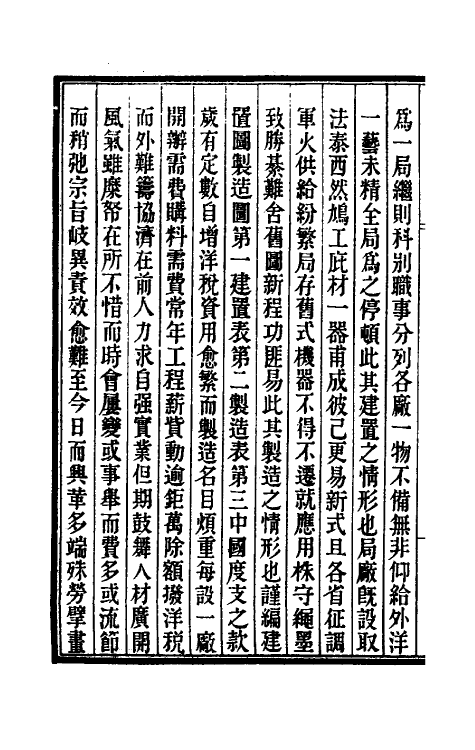 爲一局繼則科別職事分列各廠一物不備無非仰給外洋
一藝未精全局爲之停頓此其建置之情形也局廠旣設取
法泰西然鳩工庀材一器甫成彼已更易新式且各省征調
軍火供給紛繁局存舊式機器不得不遷就應用株守繩墨
致勝綦難舍舊圖新程功匪易此其製造之情形也謹編建
置圖製造圖第一建置表第二製造表第三中國度支之款
歲有定數自增洋稅資用愈繁而製造名目煩重每設一廠
開辦需費購料需費常年工程薪貲動逾鉅萬除額撥洋稅
而外難籌協濟在前人力求自强實業但期鼓舞人材廣開
風氣雖糜帑在所不惜而時會屢變或事舉而費多或流節
而稍弛宗旨岐異責效愈難至今日而興革多端殊勞擘畫